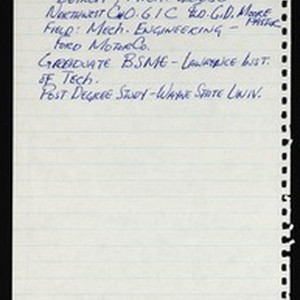 Northwest Ch. O.G.I.C Eld. G.D. Moore
Pastor
Field: Mech. Engineering -
Ford Motor Co.
Greaduate BSME - Lawrence Inst.
of Tech.
Post Degree Study - Wayne State Univ.